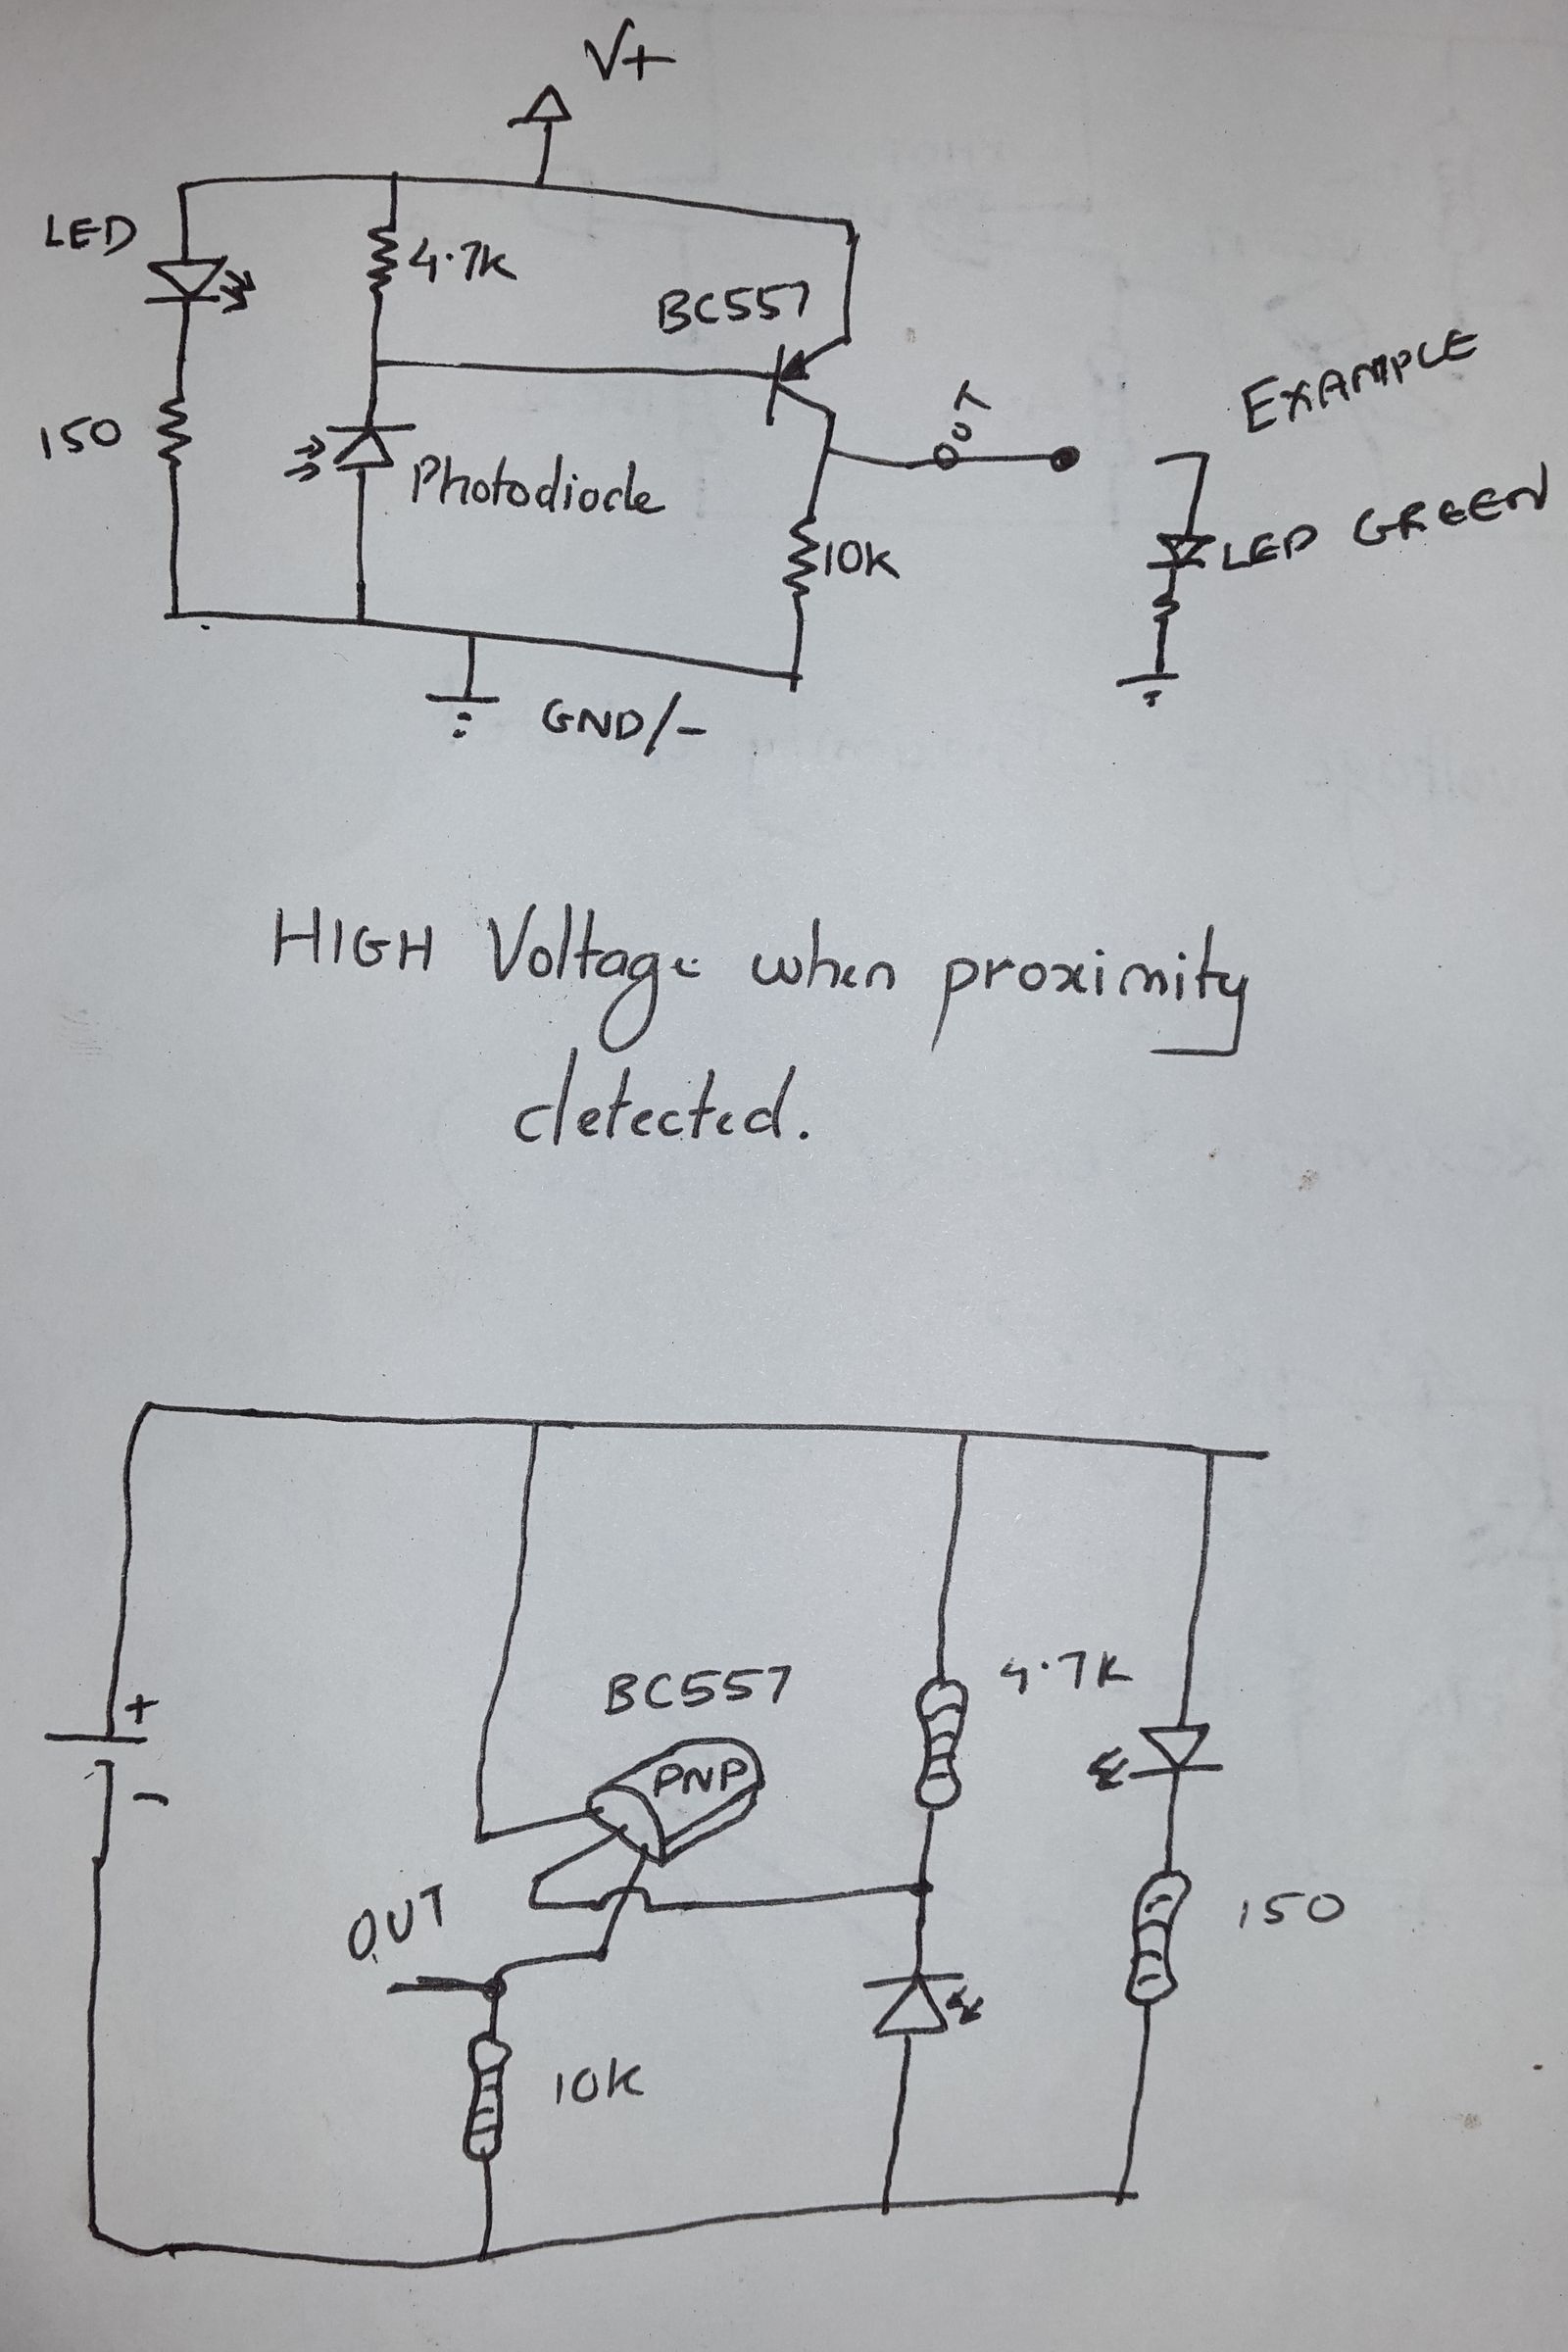 V+
LED
4.7K
BC557
150
Photodiode
OUT
EXAMPLE
LED GREEN
10K
GND/-
HIGH Voltage when proximity
detected.
+
-
BC557
PNP
4.7K
OUT
150
10K